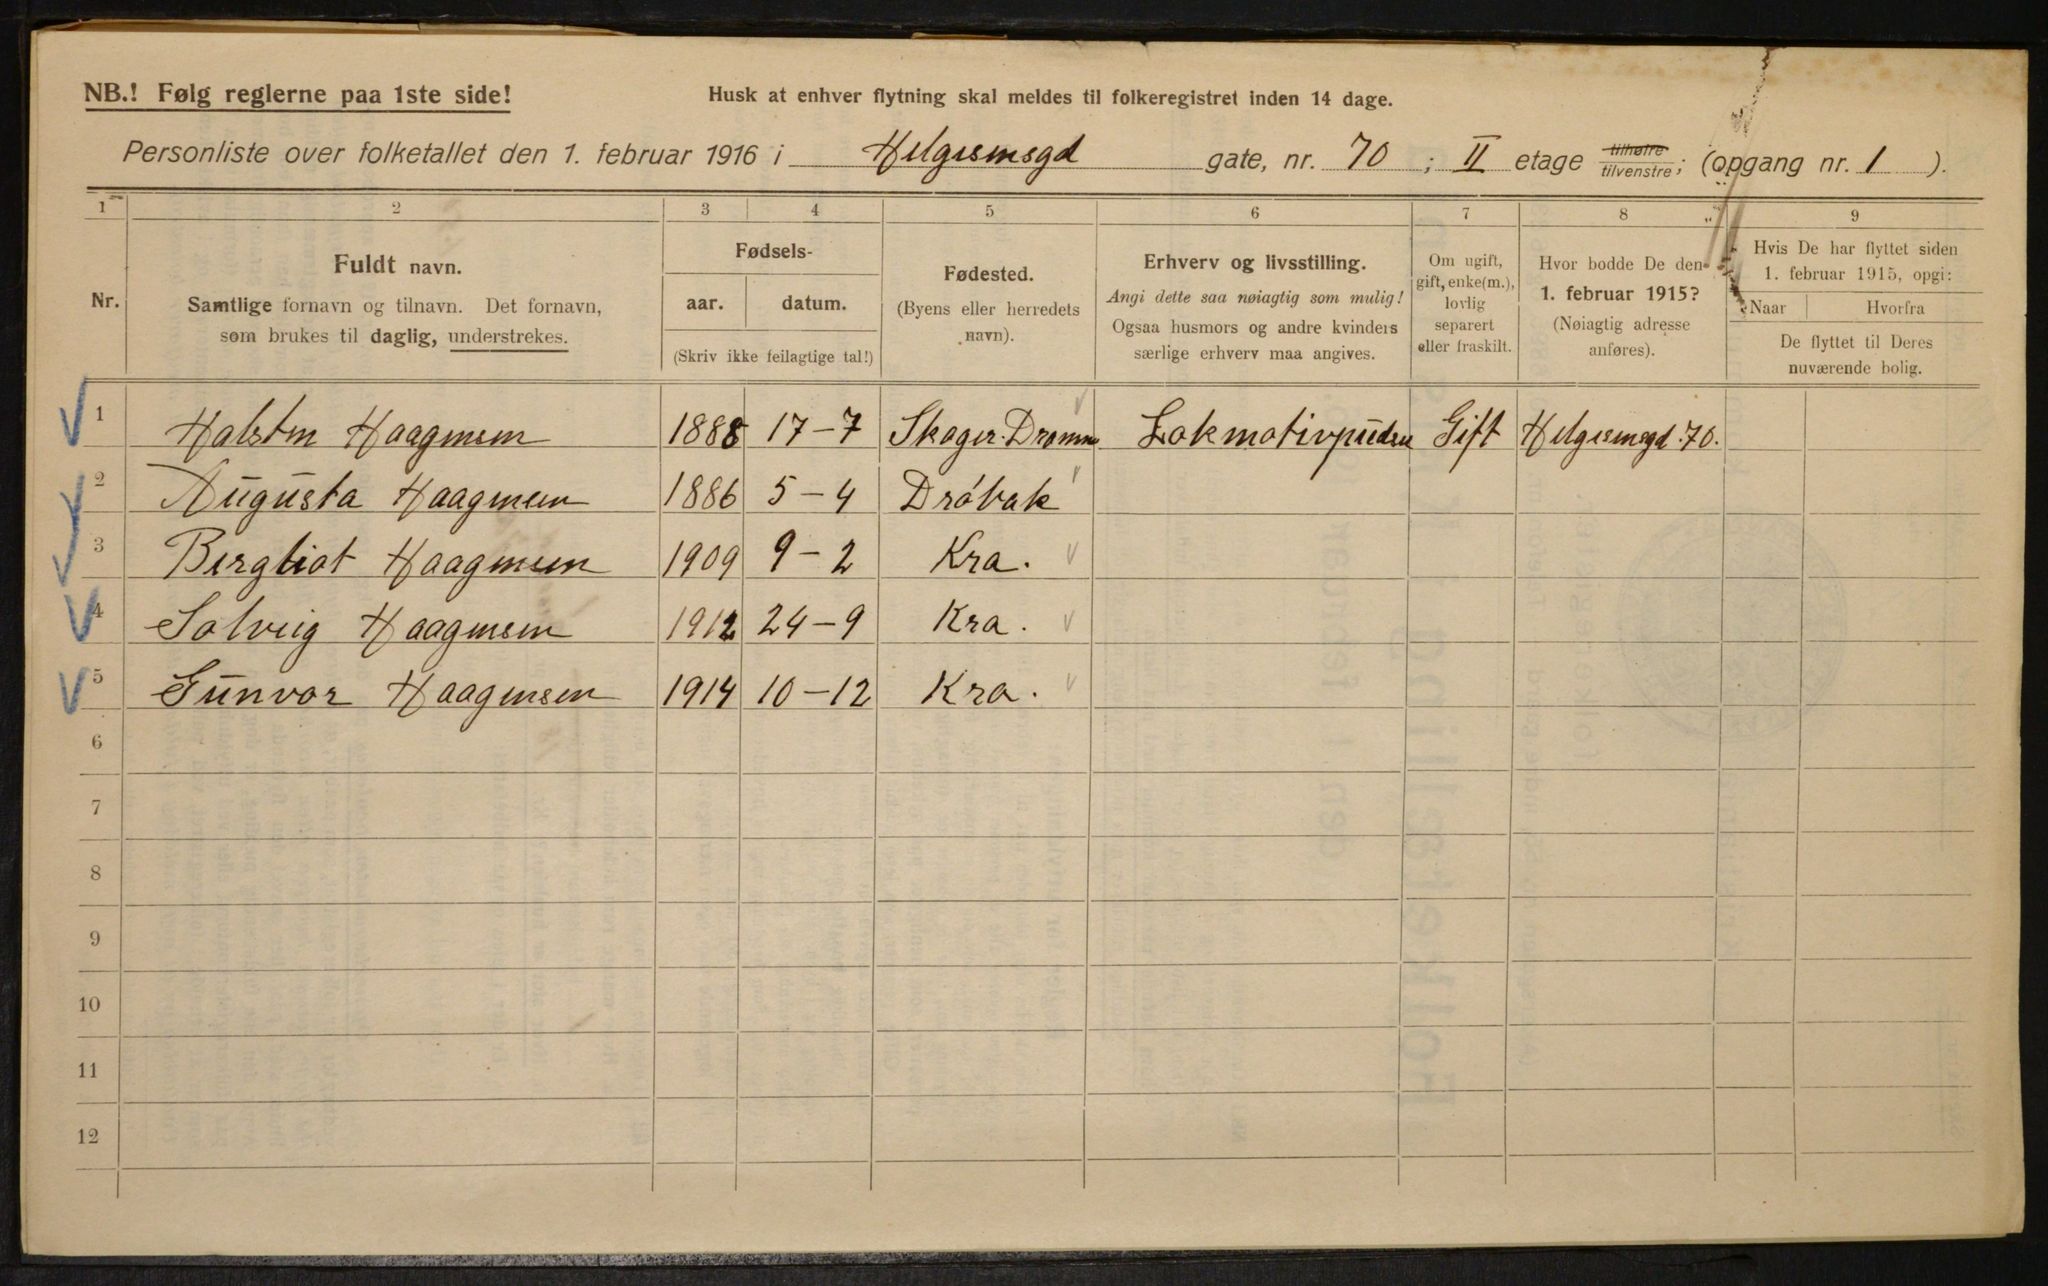 NB.! Følg reglerne paa 1ste side!
Husk at enhver flytning skal meldes til folkeregistret inden 14 dage.
Personliste over folketallet den 1. februar 1916 i Helgesensgd gate, nr. 70 ; II etage tilhøire/tilvenstre; (opgang nr. 1 ).
1 2 3 4 5 6 7 8 9
Nr.
Fuldt navn.
Samtlige fornavn og tilnavn. Det fornavn,
som brukes til daglig, understrekes.
Fødsels-
aar. datum.
(Skriv ikke feilagtige tal!)
Fødested.
(Byens eller herredets
navn).
Erhverv og livsstilling.
Angi dette saa nøiagtig som mulig!
Ogsaa husmors og andre kvinders
særlige erhverv maa angives.
Om ugift,
gift, enke(m.),
lovlig
separert
eller fraskilt.
Hvor bodde De den
1. februar 1915?
(Nøiagtig adresse
anføres).
Hvis De har flyttet siden
1. februar 1915, opgi:
Naar Hvorfra
De flyttet til Deres
nuværende bolig.
1 Halsten Haagensen 1888 17-7 Skoger. Dramm Lokmotivpudser Gift Helgesensgd. 70.
2 Augusta Haagensen 1886 5-4 Drøbak
3 Bergliot Haagensen 1909 9-2 Kra.
4 Solveig Haagensen 1912 24-9 Kra.
5 Gunvor Haagensen 1914 10-12 Kra.
6
7
8
9
10
11
12